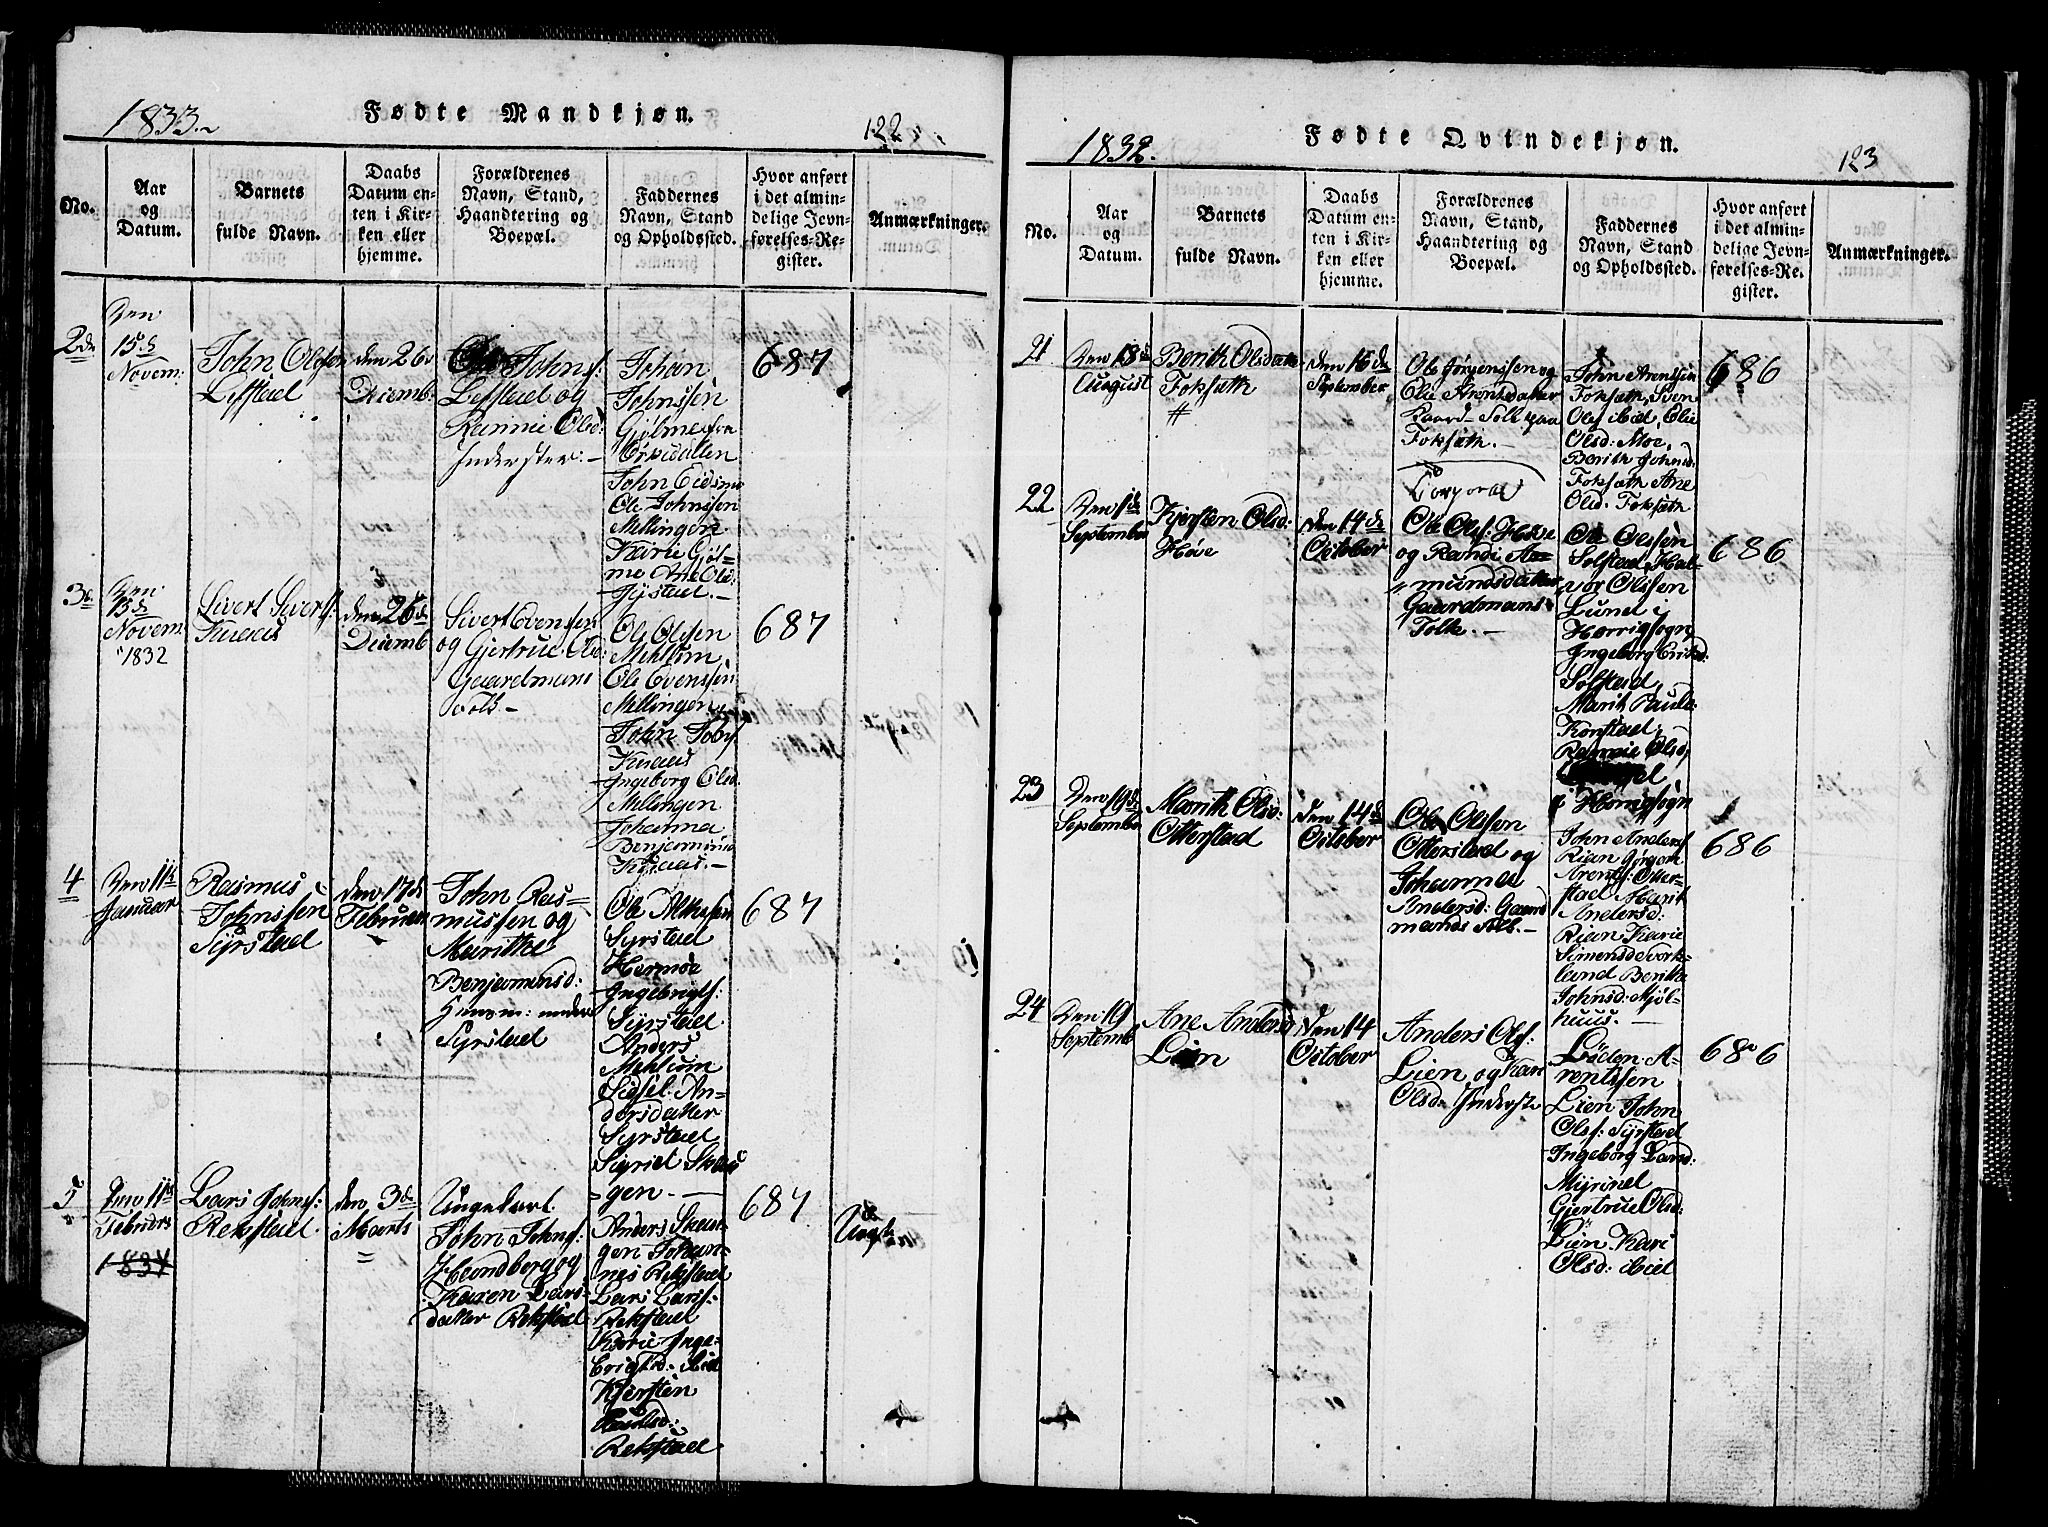 1833.
Fødte Mandkjøn.
122
No.
Aar
og
Datum.
Barnets
fulde Navn.
Daabs
Datum en-
ten i Kir-
ken eller
hjemme.
Forældrenes
Navn, Stand,
Haandtering og
Boepæl.
Faddernes
Navn, Stand
og Opholdssted.
Hvor anført
i det almin-
delige Jevn-
førelses-Re-
gister.
Anmærkninger.
2de
Den
15de
Novem:
John Olsen
Lefstad
den 26de
Decemb.
Ole Johns:
Lefstad og
Olsd:
Inderster.-
Johan
Johnssen
Gjølme fra
Orkedallen
John Eidsmo
Ole Johnssen
Mellingen
Karie Gjøl-
me Ane Ols:
687
3de
Den
15de
Novem:
1832
Sivert Siverts:
Kuaas
den 26de
Decemb
Sivert Evenssen
og Gjertrue Ols:
Gaardmans
Folk-
Ole Olssen
Mehlum,
Ole Evenssen
Mellingen
John Tobs:
Kuaas
Ingeborg Olsd.
Mellingen
Johanna
Benjamins
Kuaas.-
687
4
Den 11te
Januar
Rasmus
Johnssen
Syrstad
den 17de
Februar
John Ras-
mussen og
Marithe
Benjaminsd:
Huusm: under
Syrstad
Ole
Syrstad
Ingebrigts:
Syrstad
Anders
Mehlum
Sigsel An-
dersdatter
Syrstad
Sigrid Skau-
gen.-
687
5
Den 11te
Februar
1834
Lars Johns:
Rekstad
den 3de
Marts
Ungekarl
John Johns:
og
Karen Lars-
datter Rekstad
Anders Skau-
gen Johan-
nes Rekstad
Lars Lars:
Rekstad
Karie Inge-
brigtsd: ibid
Kjersten
Rekstad
687
Uægte
1832.
Fødte Qvindekjøn.
123
No.
Aar
og
Datum.
Barnets
fulde Navn.
Daabs
Datum en-
ten i Kir-
ken eller
hjemme.
Forældrenes
Navn, Stand,
Haandtering og
Boepæl.
Faddernes
Navn, Stand
og Opholdssted.
Hvor anført
i det almin-
delige Jevn-
førelses-Re-
gister.
Anmærkninger.
21
Den 18de
August
Berith Olsdatter
Foksæth
#
den 16de
September
Ole Jørgenssen og
Olie Arentsdatter
Gaard-Folk paa
Foksæth.-
John Arentssen
Foksæth, Sven
Ols ibid, Olie
Olsd: Moe,
Berith Johnsd:
Foksæth Ane
Olsd. Foksæth
686
22
Den 1de
September
Kjersten Olsd:
Hove
den 14de
October
Corporal
Ole Ols: Hove
og Randi Aa-
mundsdatter
Gaardmans
Folk.-
Ole Olssen
Solstad, Hal-
vor Olssen
Lund i
Horrigsogn,
Ingeborg Eriksd:
Solstad,
Marit Pauls:
Konstad,
Olsd,
Horrigsogn
686
23
Den 19de
September
Marith Olsd:
Otterstad
den 14de
October
Ole Olssen
Otterstad og
Johanna
Andersd: Gaard
mands Folk.-
John Anders:
Rian Jørgen
Arents: Otter-
stad Marit
Andersd:
Rian Karie
Simensd: Vork-
land Berith
Johnsd: Mjøl-
huus.-
686
24
Den 19
Septemb
Ane Andersd
Lien
den 14
October
Anders Ols:
Lien og Kari
Olsd: Inderste
Arentssen
Lien John
Ols: Syrstad
Ingeborg
Myrmel
Gjertrue Olsd:
Lien Kari
Olsd: ibid
686